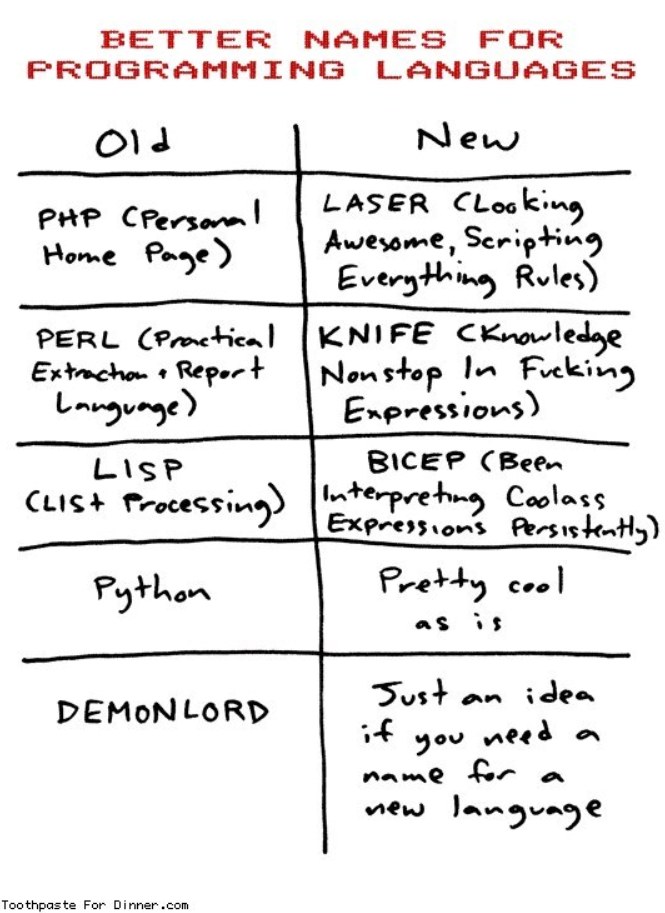 BETTER NAMES FOR
PROGRAMMING LANGUAGES
Old
New
PHP (Personal
Home Page)
LASER (Looking
Awesome, Scripting
Everything Rules)
PERL (Practical
Extraction + Report
Language)
KNIFE (Knowledge
Nonstop In Fucking
Expressions)
LISP
(LISt Processing)
BICEP (Been
Interpreting Coolass
Expressions Persistently)
Python
Pretty cool
as is
DEMONLORD
Just an idea
if you need a
name for a
new language
Toothpaste For Dinner.com